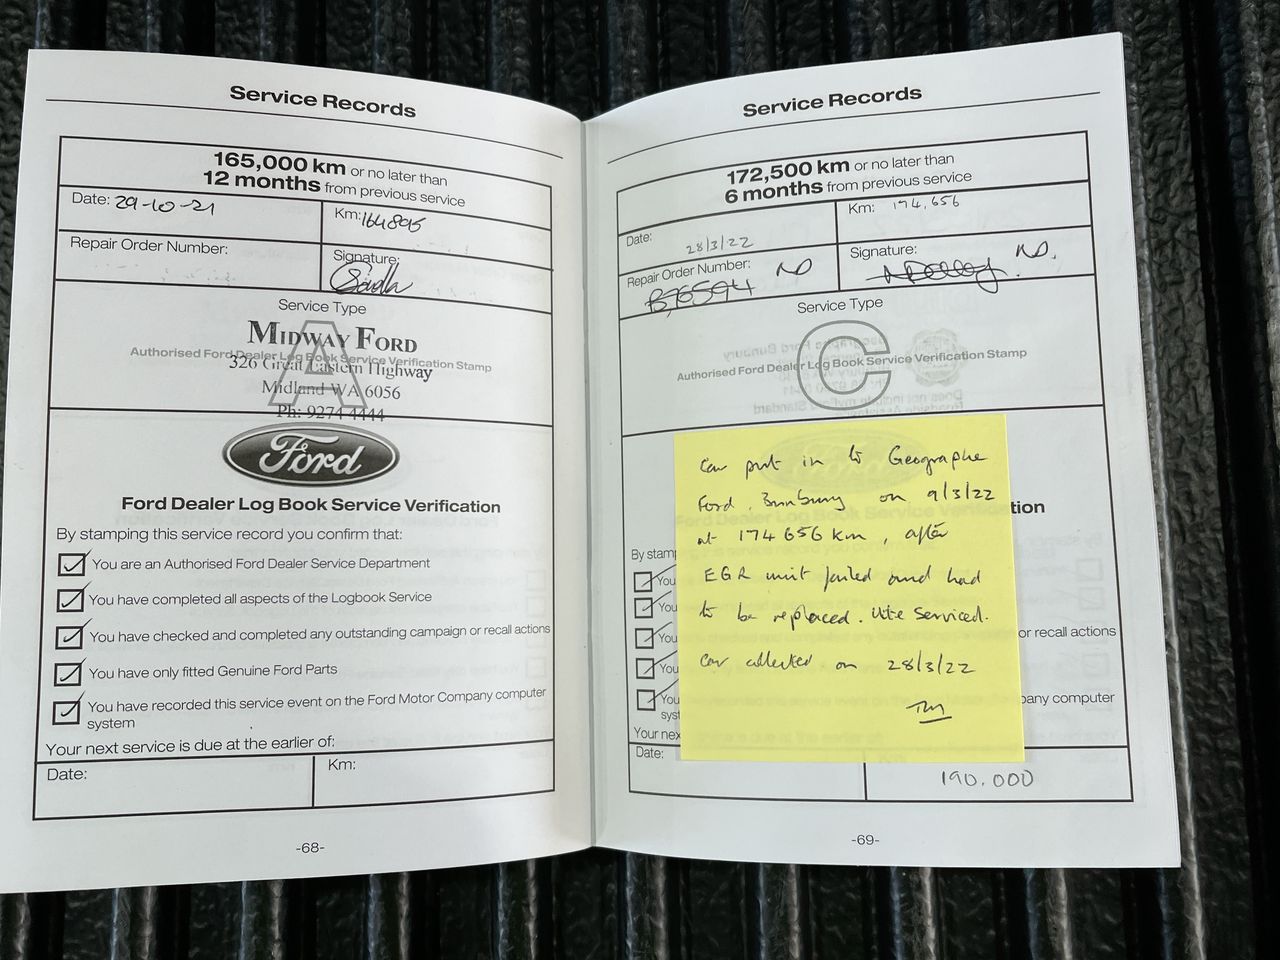 Service Records
165,000 km or no later than
12 months from previous service
Date: 29-10-21
Km: 164895
Repair Order Number:
Signature:
Service Type
A
MIDWAY FORD
Authorised Ford Dealer Log Book Service Verification Stamp
326 Great Eastern Highway
Midland WA 6056
Ph: 9274 4444
Ford
Ford Dealer Log Book Service Verification
By stamping this service record you confirm that:
You are an Authorised Ford Dealer Service Department
You have completed all aspects of the Logbook Service
You have checked and completed any outstanding campaign or recall actions
You have only fitted Genuine Ford Parts
You have recorded this service event on the Ford Motor Company computer
system
Your next service is due at the earlier of:
Date:
Km:
-68-
Service Records
172,500 km or no later than
6 months from previous service
Date: 28/3/22
Km: 174,656
Repair Order Number: ND
B76594
Signature: ND.
Service Type
C
Authorised Ford Dealer Log Book Service Verification Stamp
Car put in to Geographe
Ford, Bunbury on 9/3/22
at 174 656 km, after
EGR unit failed and had
to be replaced. Ute serviced.
Car collected on 28/3/22
tion
By stamp
You
You
You
or recall actions
You
You
pany computer
syst
Your nex
Date:
190,000
-69-